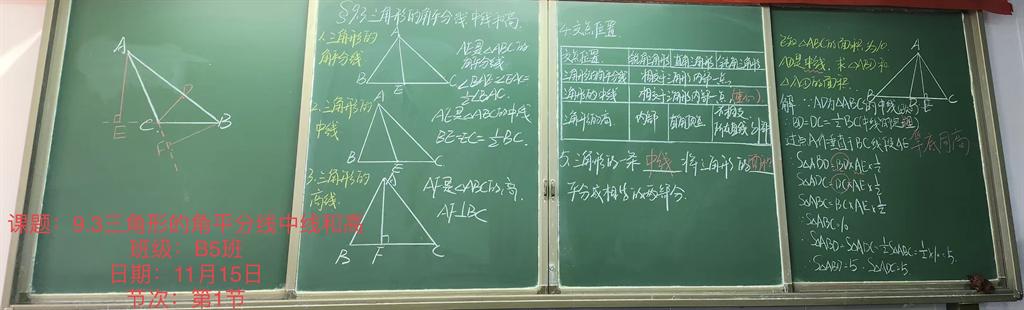 A
E
C
B
D
F
课题：9.3三角形的角平分线中线和高
班级：B5班
日期：11月15日
节次：第1节
§9.3三角形的角平分线中线和高.
1.三角形的
角平分线
A
B
E
C
AE是△ABC的
角平分线
∠BAE=∠EAC=
½∠BAC.
2.三角形的
中线
A
B
E
C
AE是△ABC的中线
BE=EC=½BC.
3.三角形的
高线
A
B
F
C
AF是△ABC的高.
AF⊥BC
4.交点位置.
交点位置 锐角三角形 直角三角形 钝角三角形
三角形的角平分线 相交于三角形内部一点.
三角形的中线 相交于三角形内部一点.(重心)
三角形的高 内部 直角顶点 不相交
5.三角形的一条中线将三角形的面积
平分成相等的两部分.
已知△ABC的面积为10.
AD是中线,求△ABD和
△ADC的面积.
A
B
D
E
C
解:∵AD为△ABC的中线
∴BD=DC=½BC(中线的定义)
过点A作垂直于BC线段AE
等底同高
∴S△ABD=BD×AE×½
S△ADC=DC×AE×½
S△ABC=BC×AE×½
∵S△ABC=10
∴S△ABD=S△ADC=½S△ABC=½×10=5.
∴S△ABD=5 S△ADC=5